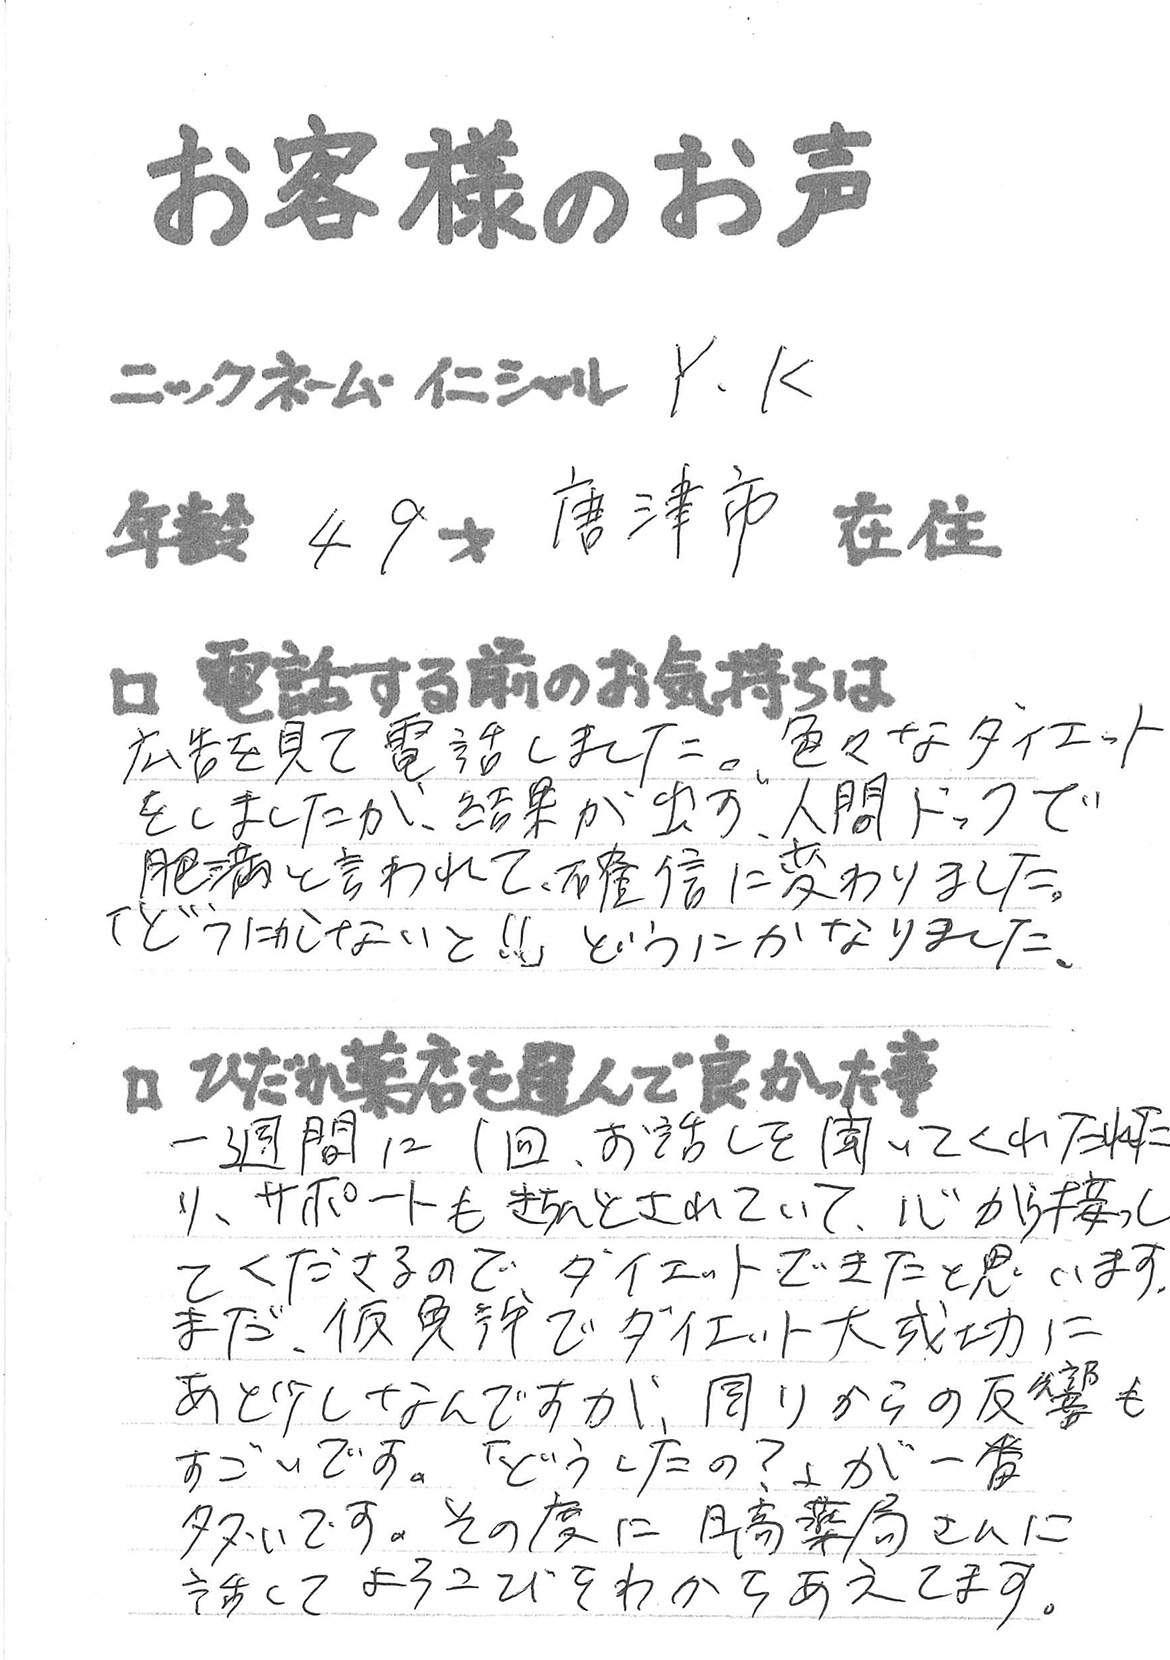 お客様のお声
ニックネーム・イニシャル Y.K
年齢 49才 唐津市 在住
□ 電話する前のお気持ちは
広告を見て電話しました。色々なダイエット
をしましたが、結果が出ず、人間ドックで
肥満と言われて、確信に変わりました。
「どうにかしないと!!」どうにかなりました。
□ ひだか薬店を選んで良かった事
一週間に1回、お話しを聞いてくれたれた
り、サポートもきちんとされていて、心から接っし
てくださるので、ダイエットできたと思います。
まだ、仮免許でダイエット大成功に
あと少しなんですが、周りからの反響も
すごいです。「どうしたの?」が一番
多いです。その度に日高薬局さんに
話してよろこびをわかちあえてます。